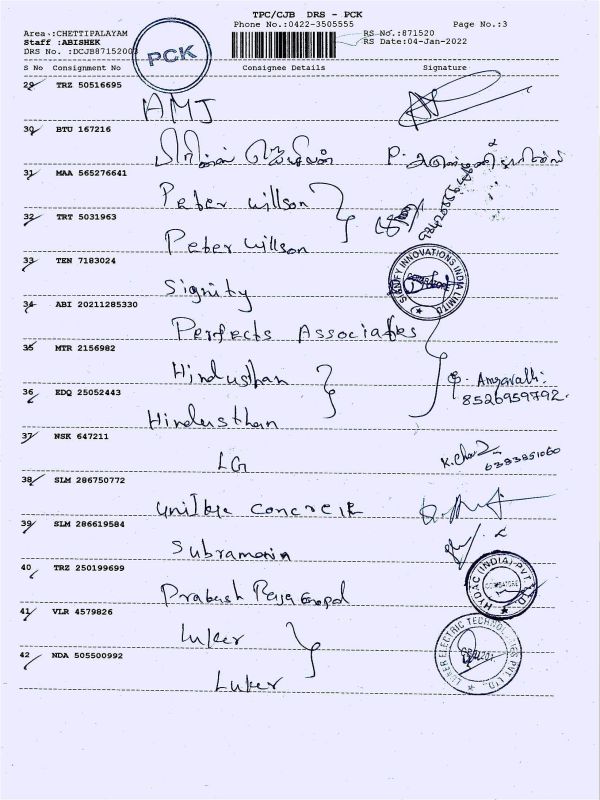 TPC/CJB DRS - PCK
Phone No.:0422-3505555 Page No.:3
Area :CHETTIPALAYAM RS No.:871520
Staff :ABISHEK RS Date:04-Jan-2022
DRS No. :DCJB87152003
PCK
S No Consignment No Consignee Details Signature
29 TRZ 50516695
AMJ
30 BTU 167216
P.
31 MAA 565276641
Peter Willson
32 TRT 5031963
Peter Willson
33 TEN 7183024
Signity
SIGNIFY INNOVATIONS INDIA LIMITED
34 ABI 20211285330
Perfects Associates
35 MTR 2156982
Hindusthan
36 EDQ 25052443
8526959792.
Hindusthan
37 NSK 647211
LG
K.
6383851060
38 SLM 286750772
concrete
39 SLM 286619584
Subramonia
40 TRZ 250199699
HYDAC (INDIA) PVT. LTD.
COIMBATORE
Prakash
41 VLR 4579826
Luker
LUKER ELECTRIC TECHNOLOGIES PVT LTD.
42 NDA 505500992
Luker